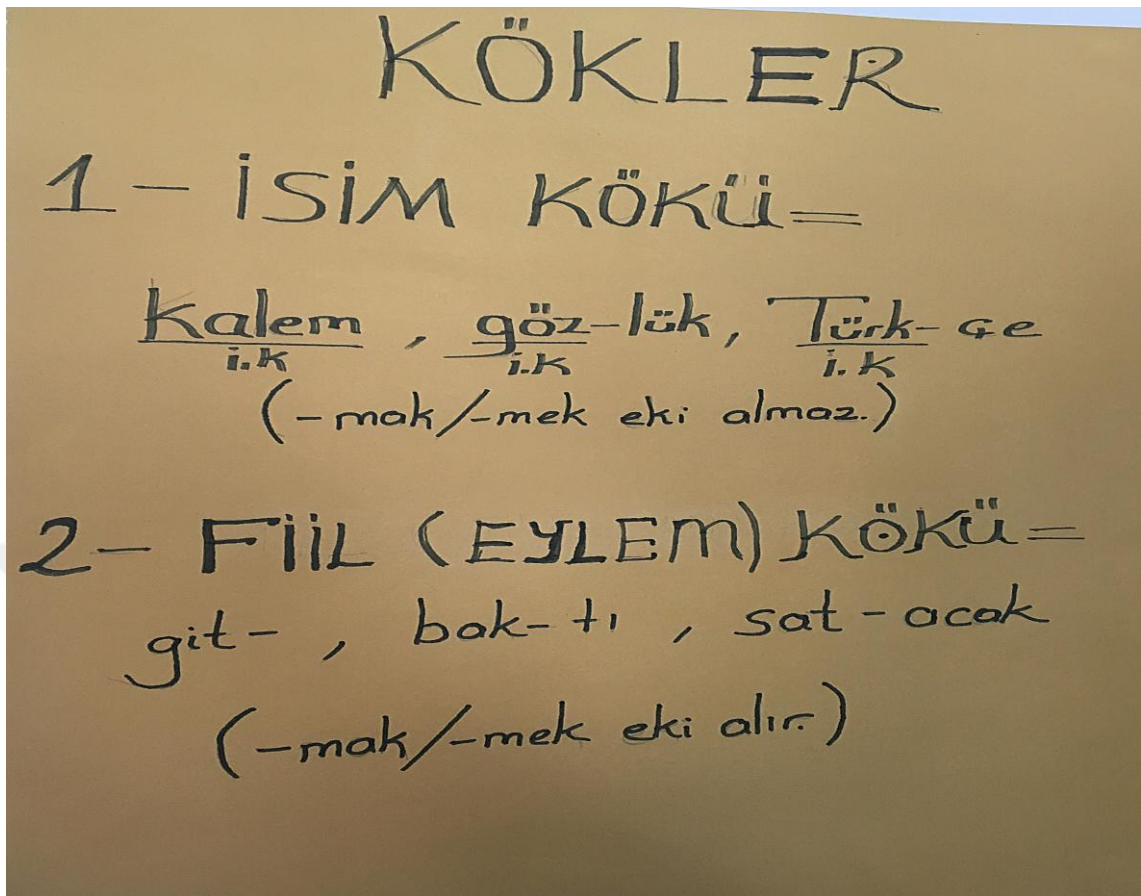 KÖKLER
1 - İSİM KÖKÜ=
Kalem , göz-lük, Türk-çe
i.k i.k i.k
(-mak/-mek eki almaz.)
2- FİİL (EYLEM) KÖKÜ=
git- , bak-tı , sat-acak
(-mak/-mek eki alır.)